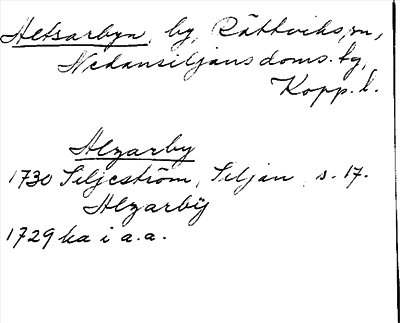 Altsarbyn, by, Rättviks sn,
Nedansiljans doms. tg,
Kopp. l.
Alzarby
1730 Siljeström, Siljan s. 17.
Alzarbÿ
1729 ka i a.a.